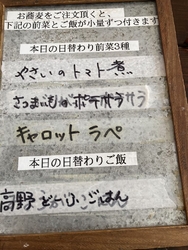 お蕎麦をご注文頂くと、
下記の前菜とご飯が小量ずつ付きます
本日の日替わり前菜3種
やさいのトマト煮
さつまいもポテトサラダ
キャロットラペ
本日の日替わりご飯
高野ごはん